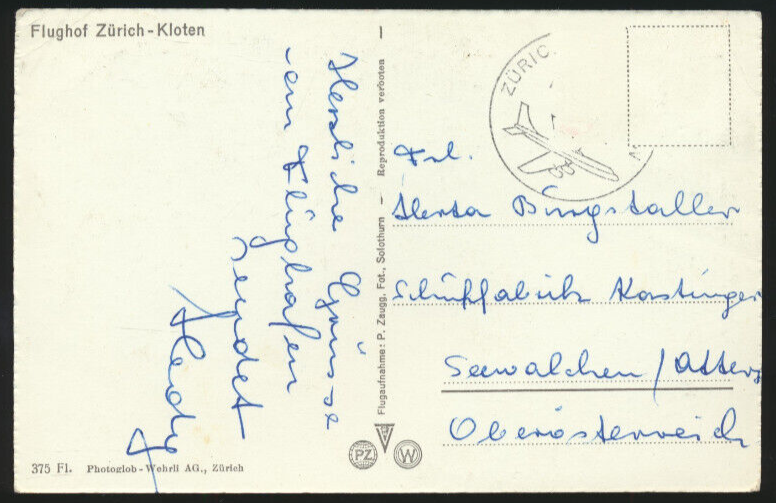 Flughof Zürich-Kloten
Herzliche Grüsse
vom Flughafen
sendet
Hedy
Frl.
Herta Burgstaller
Schuhfabrik Kastinger
Seewalchen / Atters
Oberösterreich
ZÜRIC
Flugaufnahme: P. Zaugg. Fot., Solothurn – Reproduktion verboten –
PZ
W
375 Fl. Photoglob-Wehrli AG., Zürich